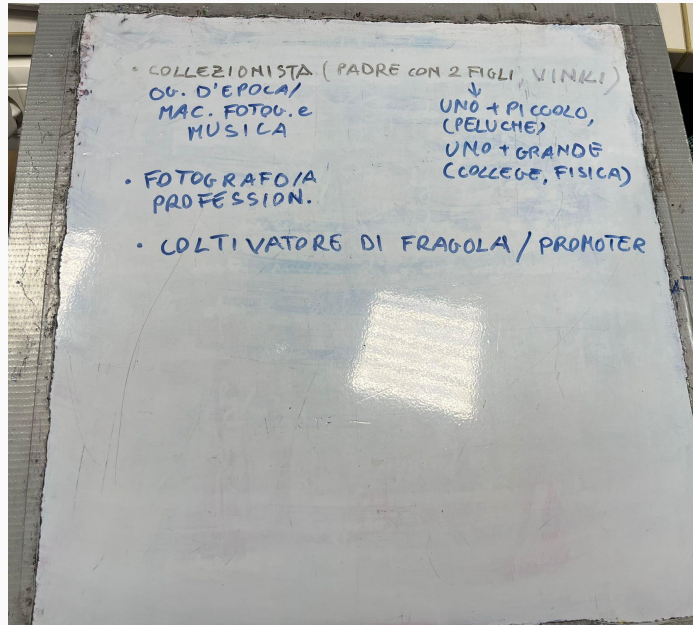 • COLLEZIONISTA (PADRE CON 2 FIGLI, VINILI)
OG. D'EPOCA/
MAC. FOTOG. e
MUSICA
↓
UNO + PICCOLO,
(PELUCHE)
UNO + GRANDE
(COLLEGE, FISICA)
• FOTOGRAFO/A
PROFESSION.
• COLTIVATORE DI FRAGOLA / PROMOTER